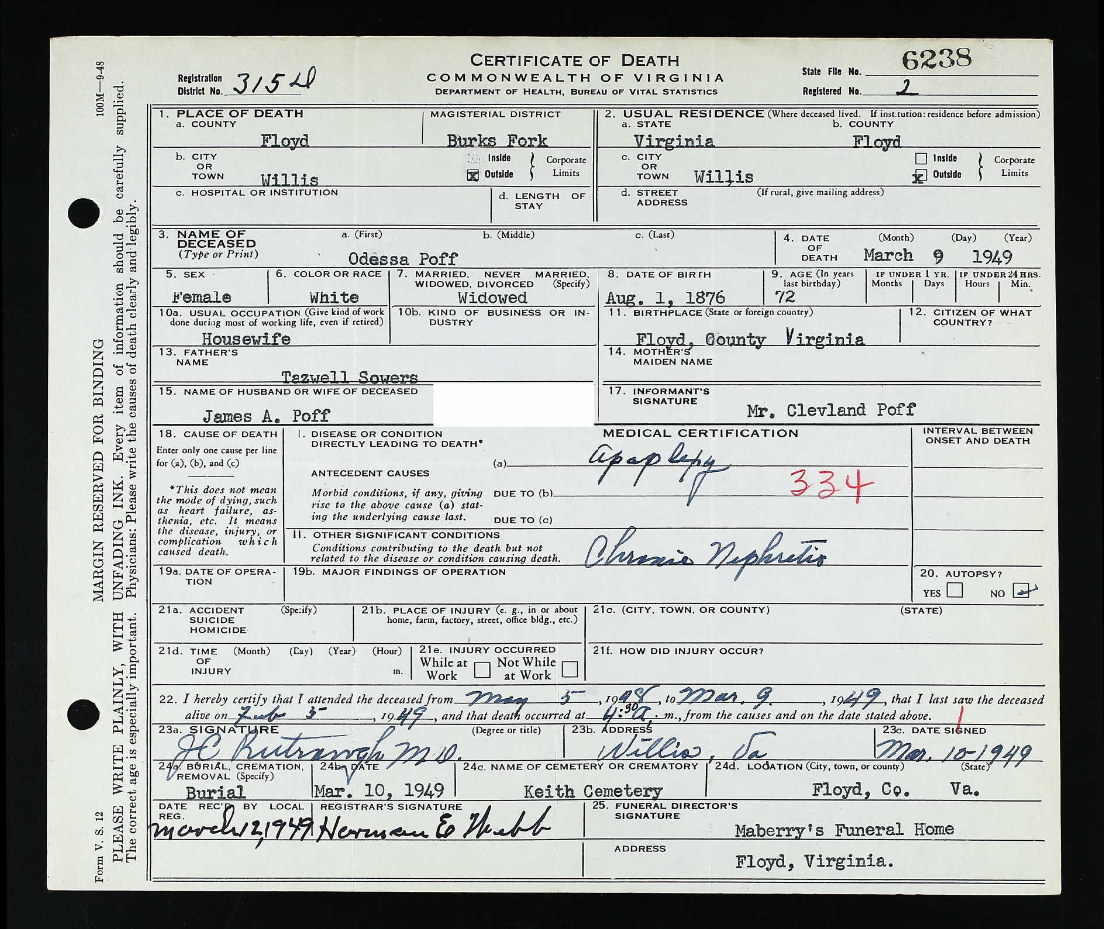 CERTIFICATE OF DEATH
COMMONWEALTH OF VIRGINIA
DEPARTMENT OF HEALTH, BUREAU OF VITAL STATISTICS
Registration District No. 315
State File No. 6238
Registered No. 2
1. PLACE OF DEATH
a. COUNTY Floyd
MAGISTERIAL DISTRICT Burks Fork
b. CITY OR TOWN Willis
Inside
Outside
Corporate Limits
c. HOSPITAL OR INSTITUTION
d. LENGTH OF STAY
2. USUAL RESIDENCE (Where deceased lived. If institution: residence before admission)
a. STATE Virginia
b. COUNTY Floyd
c. CITY OR TOWN Willis
Inside
Outside
Corporate Limits
d. STREET ADDRESS (If rural, give mailing address)
3. NAME OF DECEASED (Type or Print)
a. (First) b. (Middle) c. (Last)
Odessa Poff
4. DATE OF DEATH (Month) (Day) (Year)
March 9 1949
5. SEX Female
6. COLOR OR RACE White
7. MARRIED, NEVER MARRIED, WIDOWED, DIVORCED (Specify) Widowed
8. DATE OF BIRTH Aug. 1, 1876
9. AGE (In years last birthday) 72
IF UNDER 1 YR. Months Days
IF UNDER 24 HRS. Hours Min.
10a. USUAL OCCUPATION (Give kind of work done during most of working life, even if retired)
Housewife
10b. KIND OF BUSINESS OR INDUSTRY
11. BIRTHPLACE (State or foreign country)
Floyd, County Virginia
12. CITIZEN OF WHAT COUNTRY?
13. FATHER'S NAME
Tazwell Sowers
14. MOTHER'S MAIDEN NAME
15. NAME OF HUSBAND OR WIFE OF DECEASED
James A. Poff
17. INFORMANT'S SIGNATURE
Mr. Clevland Poff
18. CAUSE OF DEATH
Enter only one cause per line for (a), (b), and (c)
*This does not mean the mode of dying, such as heart failure, asthenia, etc. It means the disease, injury, or complication which caused death.
MEDICAL CERTIFICATION
INTERVAL BETWEEN ONSET AND DEATH
I. DISEASE OR CONDITION DIRECTLY LEADING TO DEATH*
(a) Apaplepy
ANTECEDENT CAUSES
334
Morbid conditions, if any, giving rise to the above cause (a) stating the underlying cause last.
DUE TO (b)
DUE TO (c)
II. OTHER SIGNIFICANT CONDITIONS
Conditions contributing to the death but not related to the disease or condition causing death.
Chronic Nephretis
19a. DATE OF OPERATION
19b. MAJOR FINDINGS OF OPERATION
20. AUTOPSY?
YES NO
21a. ACCIDENT SUICIDE HOMICIDE (Specify)
21b. PLACE OF INJURY (e. g., in or about home, farm, factory, street, office bldg., etc.)
21c. (CITY, TOWN, OR COUNTY) (STATE)
21d. TIME OF INJURY (Month) (Day) (Year) (Hour) m.
21e. INJURY OCCURRED
While at Work
Not While at Work
21f. HOW DID INJURY OCCUR?
22. I hereby certify that I attended the deceased from May 5, 1948, to Mar. 9, 1949, that I last saw the deceased
alive on Feb 5, 1949, and that death occurred at 4:30 a. m., from the causes and on the date stated above.
23a. SIGNATURE (Degree or title)
J C M D.
23b. ADDRESS
Willis, Va
23c. DATE SIGNED
Mar. 10-1949
24a. BURIAL, CREMATION, REMOVAL (Specify)
Burial
24b. DATE
Mar. 10, 1949
24c. NAME OF CEMETERY OR CREMATORY
Keith Cemetery
24d. LOCATION (City, town, or county) (State)
Floyd, Co. Va.
DATE REC'D BY LOCAL REG.
March 12, 1949
REGISTRAR'S SIGNATURE
Herman E Webb
25. FUNERAL DIRECTOR'S SIGNATURE
Maberry's Funeral Home
ADDRESS
Floyd, Virginia.
Form V. S. 12
100M—9-48
MARGIN RESERVED FOR BINDING
PLEASE WRITE PLAINLY, WITH UNFADING INK. Every item of information should be carefully supplied.
The correct age is especially important. Physicians: Please write the causes of death clearly and legibly.